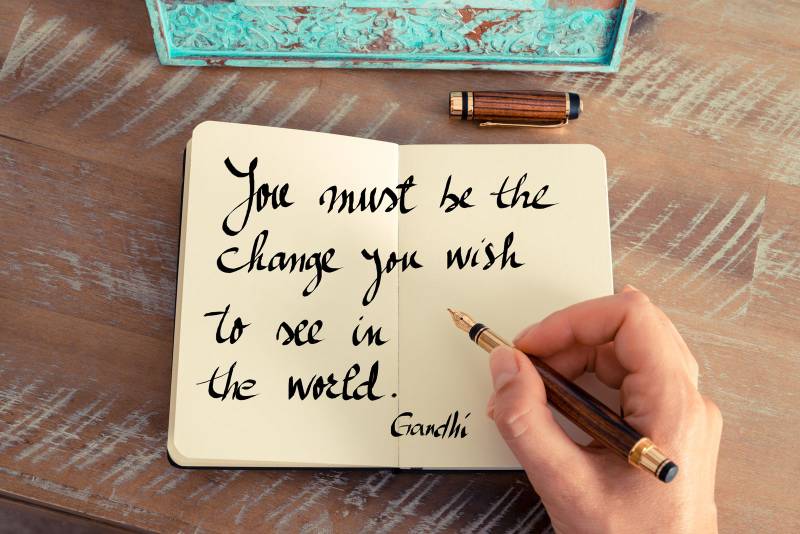 You must be the
change you wish
to see in
the world.
Gandhi